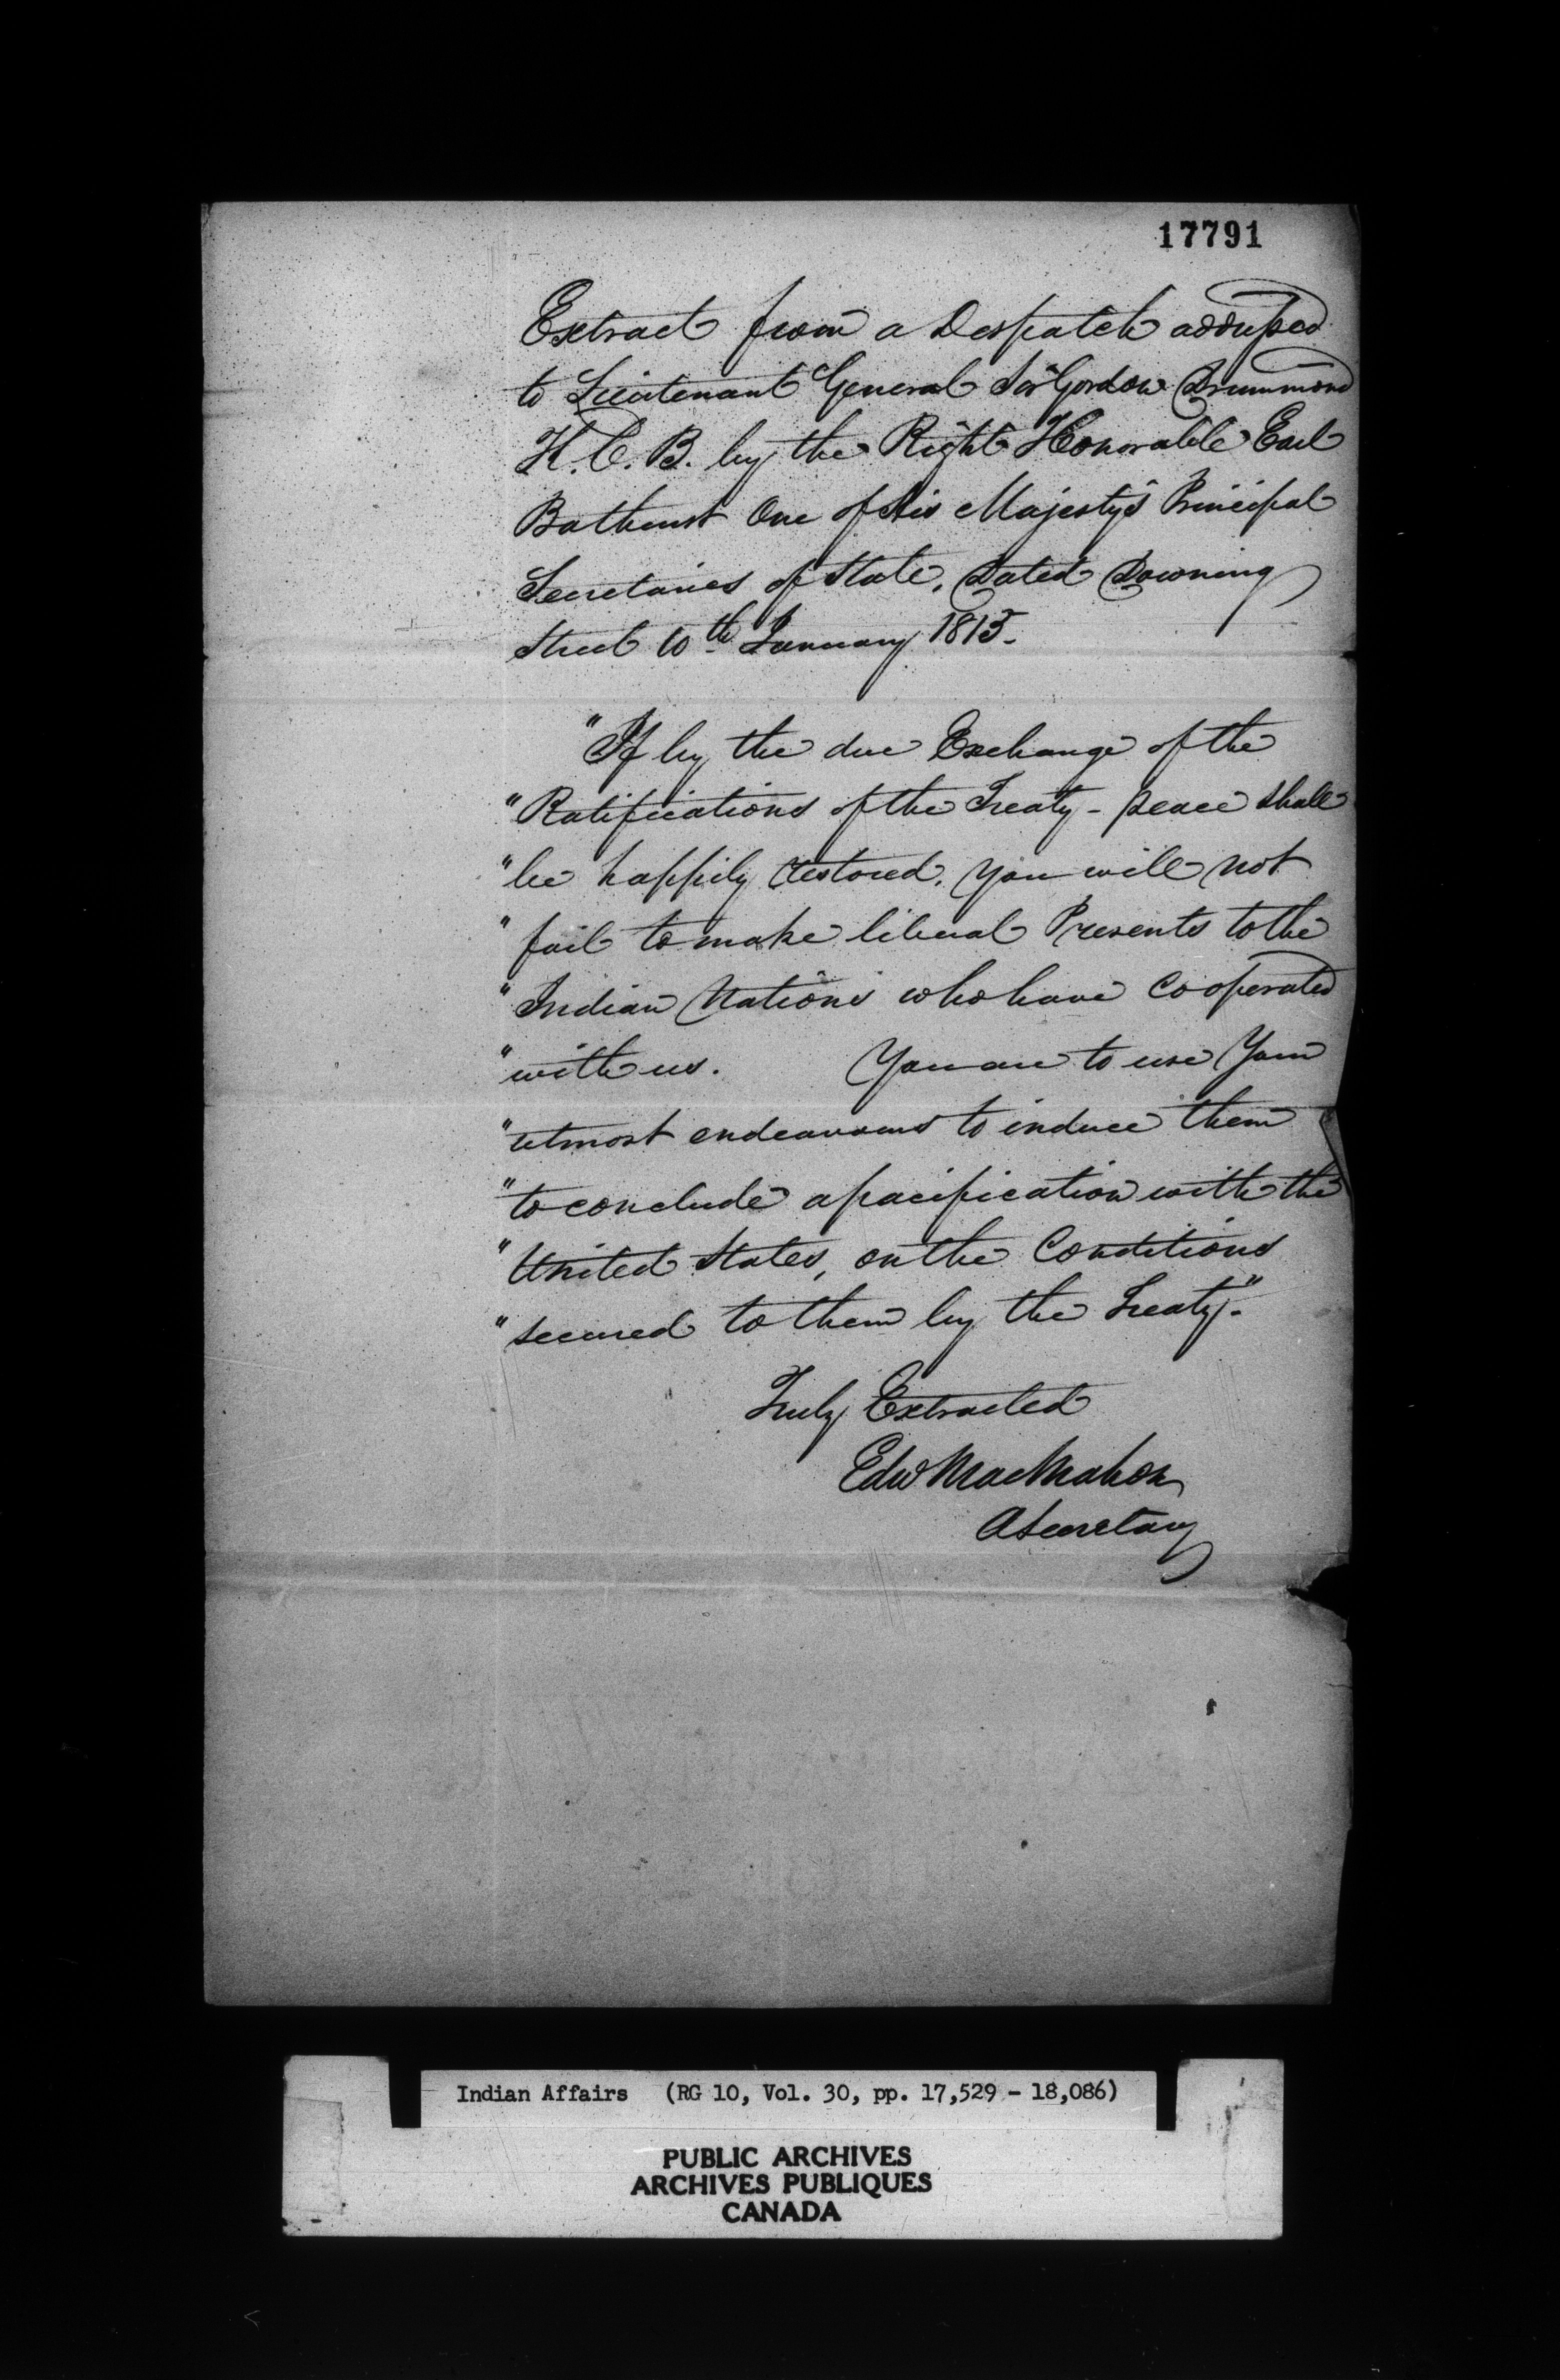 17791
Extract from a Despatch addressed
to Lieutenant General Sir Gordon Drummond
K.C.B. by the Right Honorable Earl
Bathurst One of His Majesty's Principal
Secretaries of State, Dated Downing
Street 10th January 1815.
"If by the due Exchange of the
"Ratifications of the Treaty - peace shall
"be happily restored, you will not
"fail to make liberal Presents to the
"Indian Nations who have Cooperated
"with us. You are to use Your
"utmost endeavours to induce them
"to conclude a pacification with the
"United States, on the Conditions
"secured to them by the Treaty."
Truly Extracted
Edw MacMahon
A Secretary
Indian Affairs (RG 10, Vol. 30, pp. 17,529 - 18,086)
PUBLIC ARCHIVES
ARCHIVES PUBLIQUES
CANADA